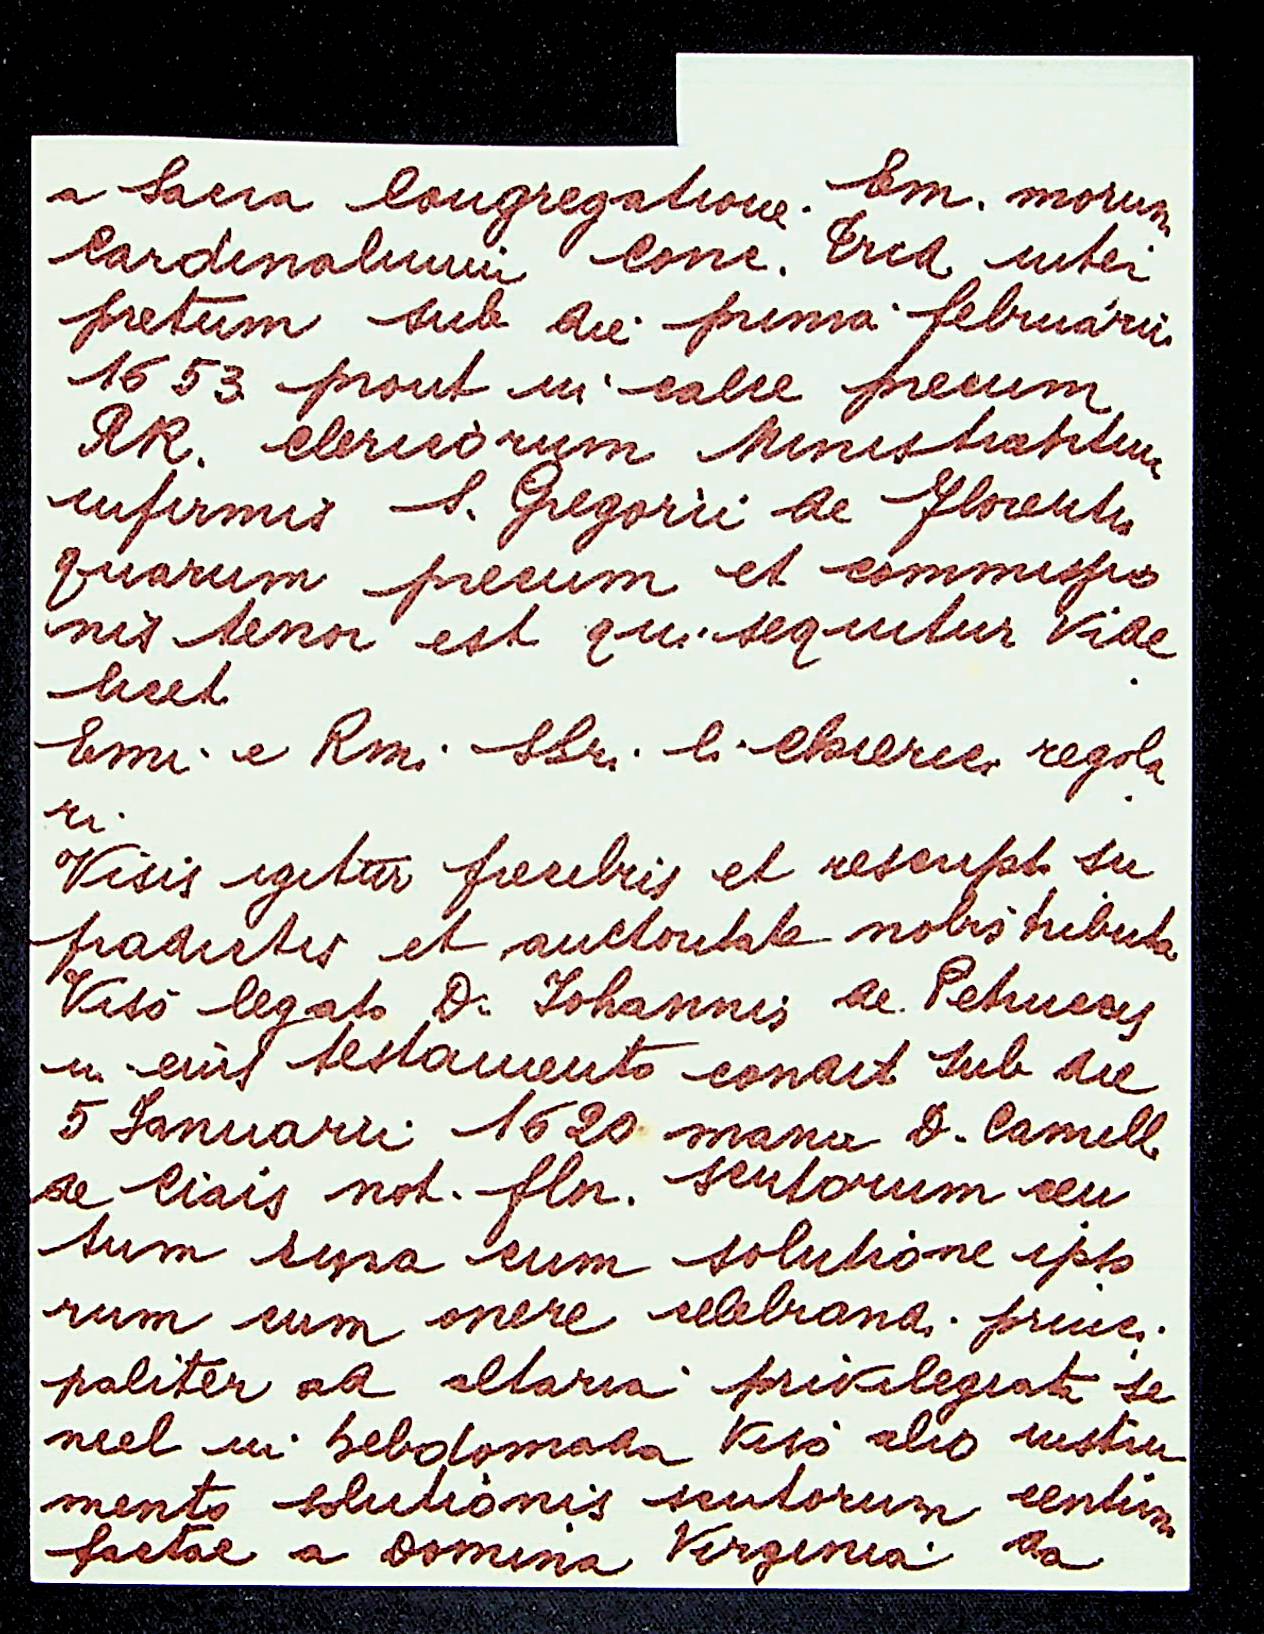 a Sacra Congregatione. Em. morum
Cardinalium Conc. Trid. inter
pretum sub die prima februarii
1653 prout in calce precum
RR. Clericorum Ministrantium
infirmis S. Gregorii de Florentia
quarum precum et commissio
nis tenor est qui sequitur Vide
licet
Emi. e Rmi. SSri. li Chierici regola
ri.
Visis igitur precibus et rescripto su
pradictis et auctoritate nobis tributa
Viso legato D. Iohannis de Petruccis
in eius testamento condit sub die
5 Ianuarii 1620 manu D. Camilli
de Ciais not. flor. scutorum cen
tum cum solutione ipso
rum cum onere celebrandi princi
paliter ad altaria privilegiata se
mel in hebdomada Viso alio instru
mento solutionis scutorum centum
factae a Domina Virginia da